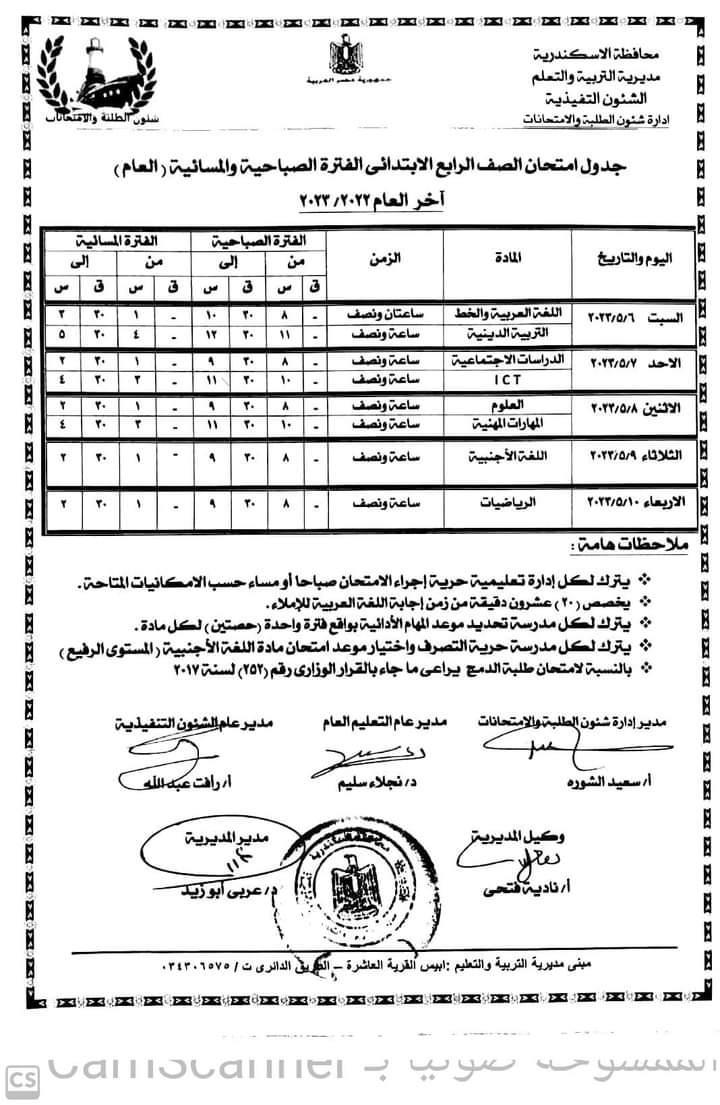 محافظة الاسكندرية
مديرية التربية والتعلم
الشئون التنفيذية
ادارة شئون الطلبة والامتحانات
جمهورية مصر العربية
شئون الطلبة والامتحانات
جدول امتحان الصف الرابع الابتدائى الفترة الصباحية والمسائية (العام)
آخر العام ٢٠٢٣/٢٠٢٢
اليوم والتاريخ المادة الزمن الفترة الصباحية الفترة المسائية
من إلى من إلى
ق س ق س ق س ق س
السبت ٢٠٢٣/٥/٦ اللغة العربية والخط ساعتان ونصف - ٨ ٣٠ ١٠ - ١ ٣٠ ٣
التربية الدينية ساعة ونصف - ١١ ٣٠ ١٢ - ٤ ٣٠ ٥
الاحد ٢٠٢٣/٥/٧ الدراسات الاجتماعية ساعة ونصف - ٨ ٣٠ ٩ - ١ ٣٠ ٢
ICT ساعة ونصف - ١٠ ٣٠ ١١ - ٣ ٣٠ ٤
الاثنين ٢٠٢٣/٥/٨ العلوم ساعة ونصف - ٨ ٣٠ ٩ - ١ ٣٠ ٢
المهارات المهنية ساعة ونصف - ١٠ ٣٠ ١١ - ٣ ٣٠ ٤
الثلاثاء ٢٠٢٣/٥/٩ اللغة الأجنبية ساعة ونصف - ٨ ٣٠ ٩ - ١ ٣٠ ٢
الاربعاء ٢٠٢٣/٥/١٠ الرياضيات ساعة ونصف - ٨ ٣٠ ٩ - ١ ٣٠ ٢
ملاحظات هامة :
يترك لكل إدارة تعليمية حرية إجراء الامتحان صباحا أو مساء حسب الامكانيات المتاحة.
يخصص (٢٠) عشرون دقيقة من زمن إجابة اللغة العربية للإملاء.
يترك لكل مدرسة تحديد موعد المهام الأدائية بواقع فترة واحدة (حصتين) لكل مادة.
يترك لكل مدرسة حرية التصرف واختيار موعد امتحان مادة اللغة الأجنبية (المستوى الرفيع)
بالنسبة لامتحان طلبة الدمج يراعى ما جاء بالقرار الوزارى رقم (٢٥٢) لسنة ٢٠١٧
مدير إدارة شئون الطلبة والامتحانات
أ/ سعيد الشوره
مدير عام التعليم العام
د/ نجلاء سليم
مدير عام الشئون التنفيذية
أ/ رأفت عبد الله
وكيل المديرية
أ/ نادية فتحى
مدير المديرية
د/ عربى أبو زيد
مبنى مديرية التربية والتعليم : ابيس القرية العاشرة – الطريق الدائرى ت / ٠٣٤٣٠٦٥٧٥
الممسوحة ضوئيا بـ CamScanner
CS